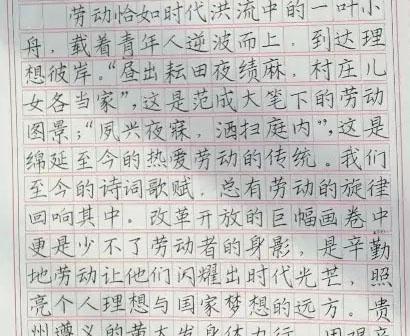 劳动恰如时代洪流中的一叶小
舟，载着青年人逆波而上，到达理
想彼岸。“昼出耘田夜绩麻，村庄儿
女各当家”，这是范成大笔下的劳动
图景；“夙兴夜寐，洒扫庭内”，这是
绵延至今的热爱劳动的传统。我们
至今的诗词歌赋，总有劳动的旋律
回响其中。改革开放的巨幅画卷中
更是少不了劳动者的身影，是辛勤
地劳动让他们闪耀出时代光芒，照
亮个人理想与国家梦想的远方。贵
州遵义的黄大发身体力行，用艰辛